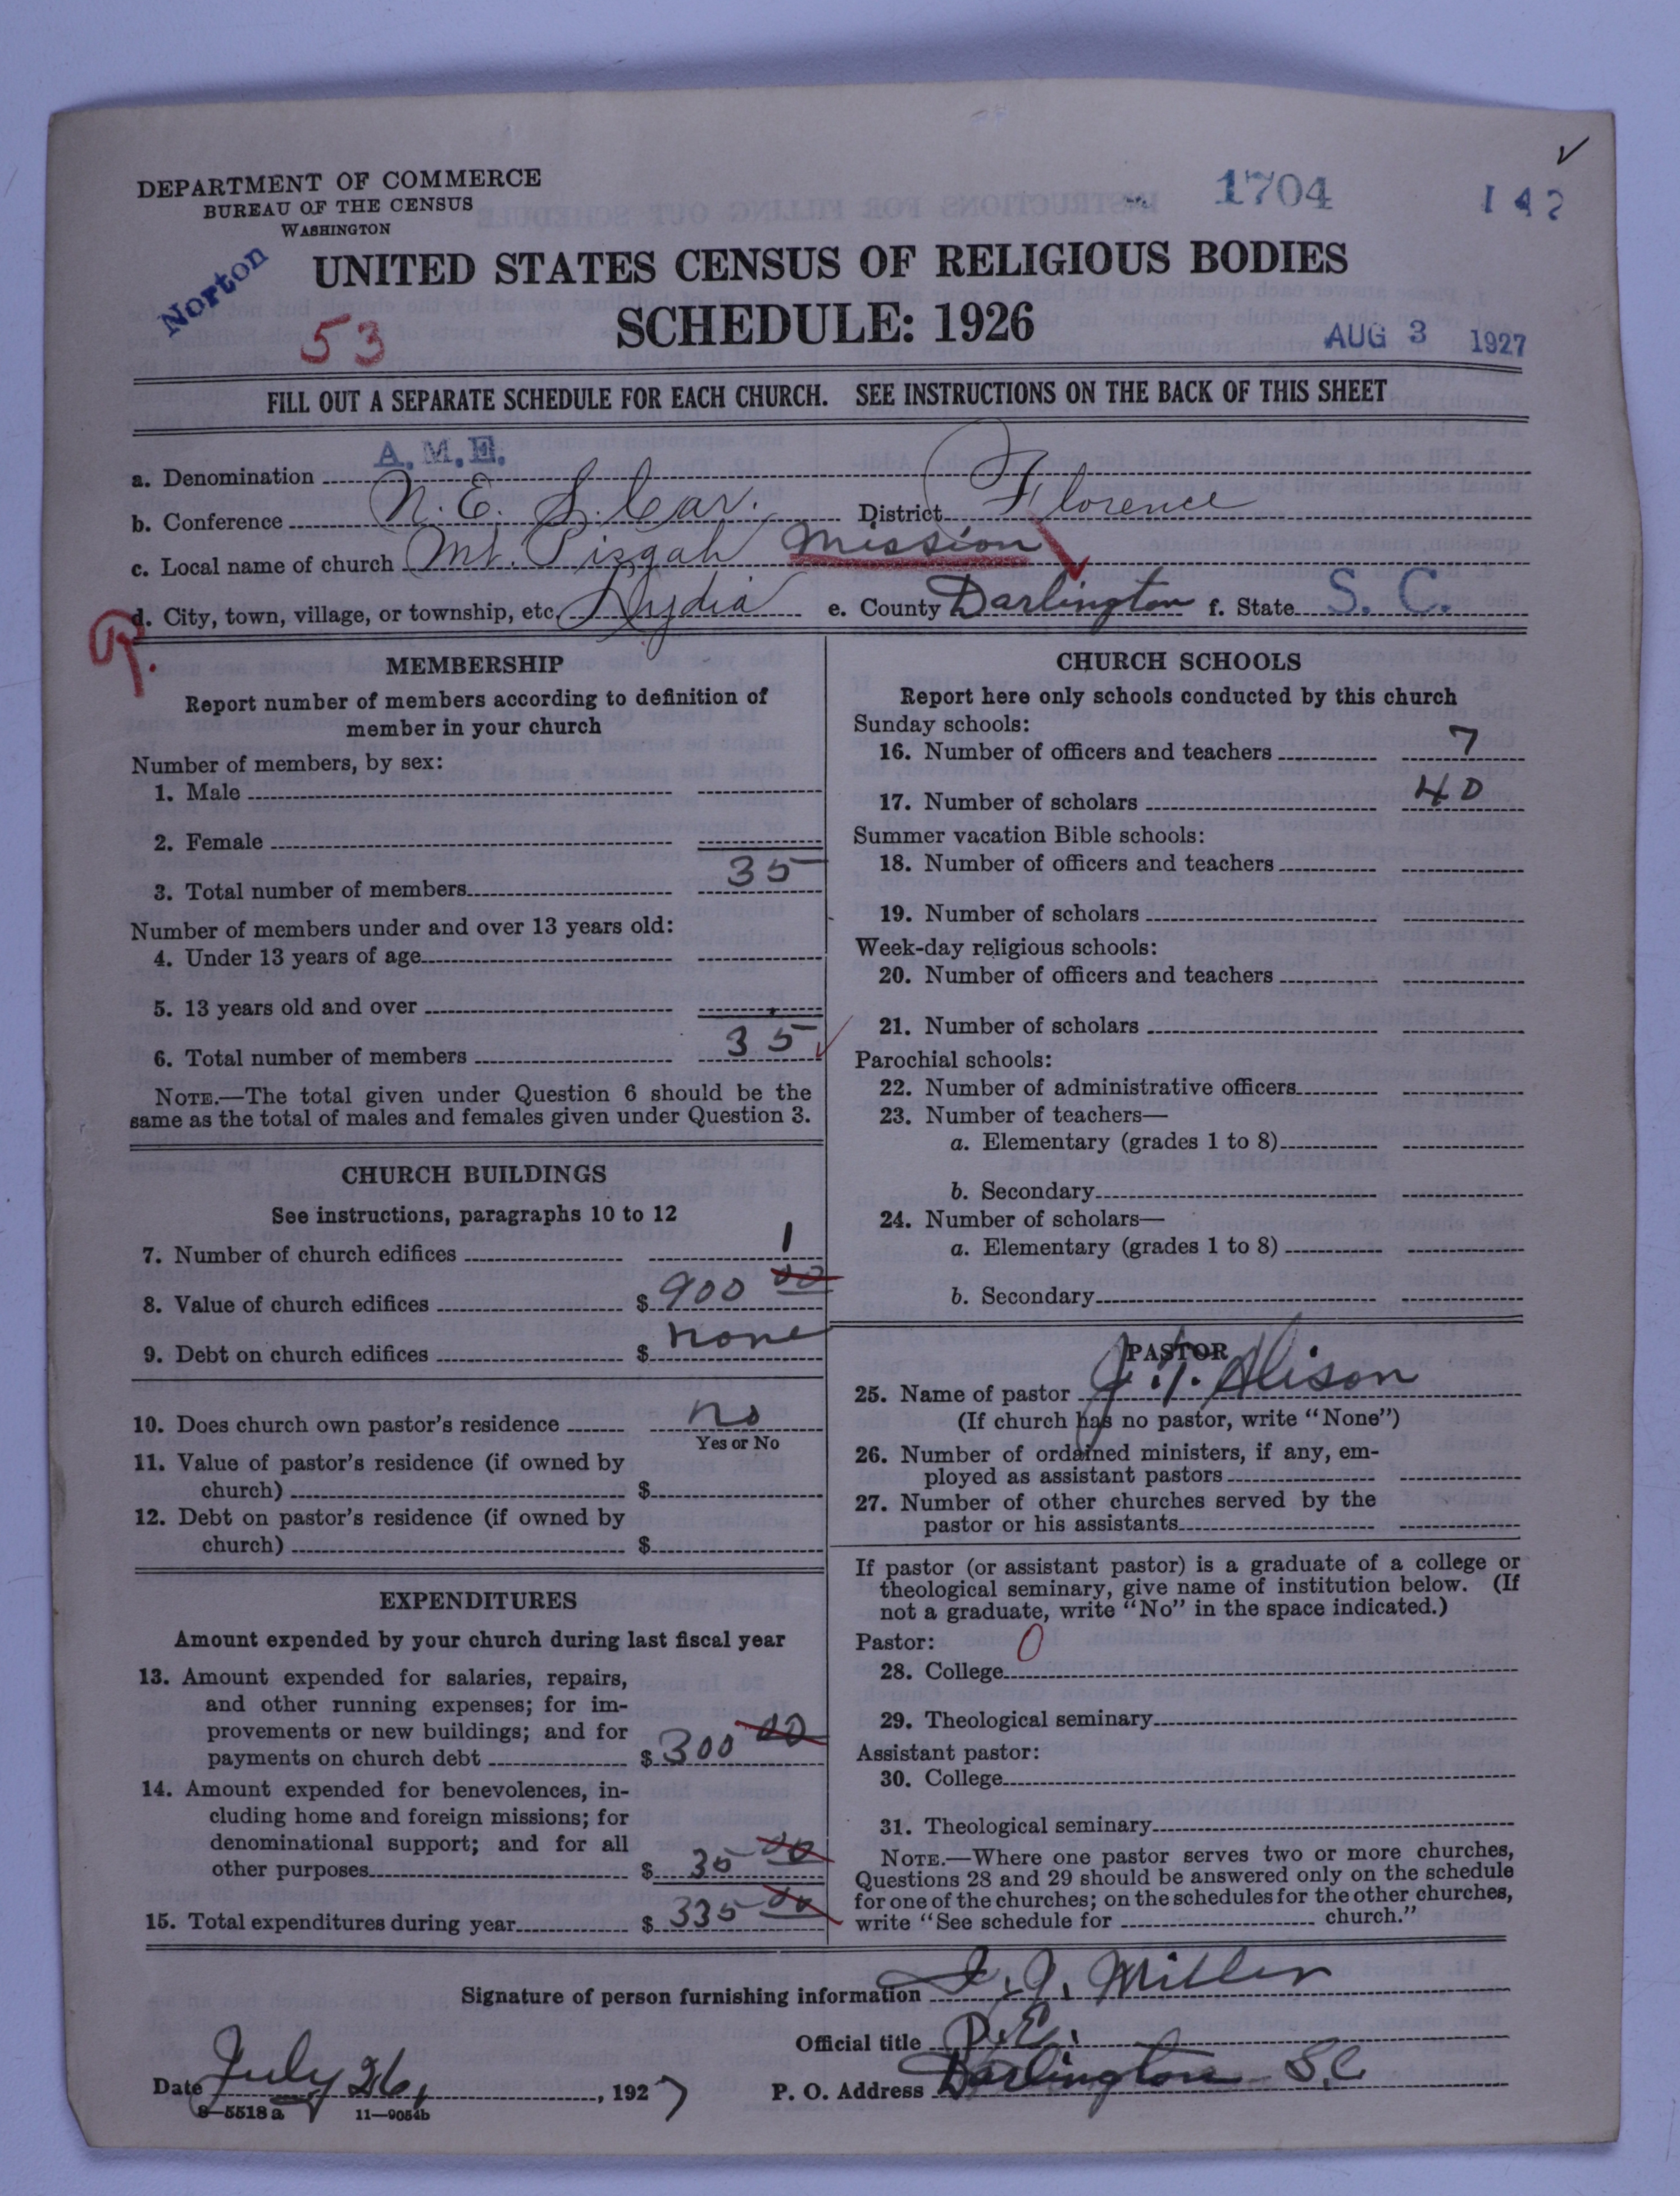 DEPARTMENT OF COMMERCE
BUREAU OF THE CENSUS
WASHINGTON
1704
142
Norton
UNITED STATES CENSUS OF RELIGIOUS BODIES
SCHEDULE: 1926
53
AUG 3 1927
FILL OUT A SEPARATE SCHEDULE FOR EACH CHURCH. SEE INSTRUCTIONS ON THE BACK OF THIS SHEET
a. Denomination A.M.E.
b. Conference N.E. S. Car. District Florence
c. Local name of church Mt. Pisgah Mission
d. City, town, village, or township, etc. Lydia e. County Darlington f. State S. C.
R.
MEMBERSHIP
Report number of members according to definition of
member in your church
Number of members, by sex:
1. Male
2. Female
3. Total number of members 35
Number of members under and over 13 years old:
4. Under 13 years of age
5. 13 years old and over
6. Total number of members 35
NOTE.—The total given under Question 6 should be the
same as the total of males and females given under Question 3.
CHURCH BUILDINGS
See instructions, paragraphs 10 to 12
7. Number of church edifices 1
8. Value of church edifices $ 900 00
9. Debt on church edifices $ none
10. Does church own pastor's residence no
Yes or No
11. Value of pastor's residence (if owned by
church) $
12. Debt on pastor's residence (if owned by
church) $
EXPENDITURES
Amount expended by your church during last fiscal year
13. Amount expended for salaries, repairs,
and other running expenses; for im-
provements or new buildings; and for
payments on church debt $ 300 00
14. Amount expended for benevolences, in-
cluding home and foreign missions; for
denominational support; and for all
other purposes $ 35 00
15. Total expenditures during year $ 335 00
CHURCH SCHOOLS
Report here only schools conducted by this church
Sunday schools:
16. Number of officers and teachers 7
17. Number of scholars 40
Summer vacation Bible schools:
18. Number of officers and teachers
19. Number of scholars
Week-day religious schools:
20. Number of officers and teachers
21. Number of scholars
Parochial schools:
22. Number of administrative officers
23. Number of teachers—
a. Elementary (grades 1 to 8)
b. Secondary
24. Number of scholars—
a. Elementary (grades 1 to 8)
b. Secondary
PASTOR
25. Name of pastor J. T. Alison
(If church has no pastor, write "None")
26. Number of ordained ministers, if any, em-
ployed as assistant pastors
27. Number of other churches served by the
pastor or his assistants
If pastor (or assistant pastor) is a graduate of a college or
theological seminary, give name of institution below. (If
not a graduate, write "No" in the space indicated.)
Pastor: 0
28. College
29. Theological seminary
Assistant pastor:
30. College
31. Theological seminary
NOTE.—Where one pastor serves two or more churches,
Questions 28 and 29 should be answered only on the schedule
for one of the churches; on the schedules for the other churches,
write "See schedule for church."
Signature of person furnishing information I. J. Miller
Official title P.E.
Date July 26, 1927 P. O. Address Darlington S.C
8—5518 a 11—9054b